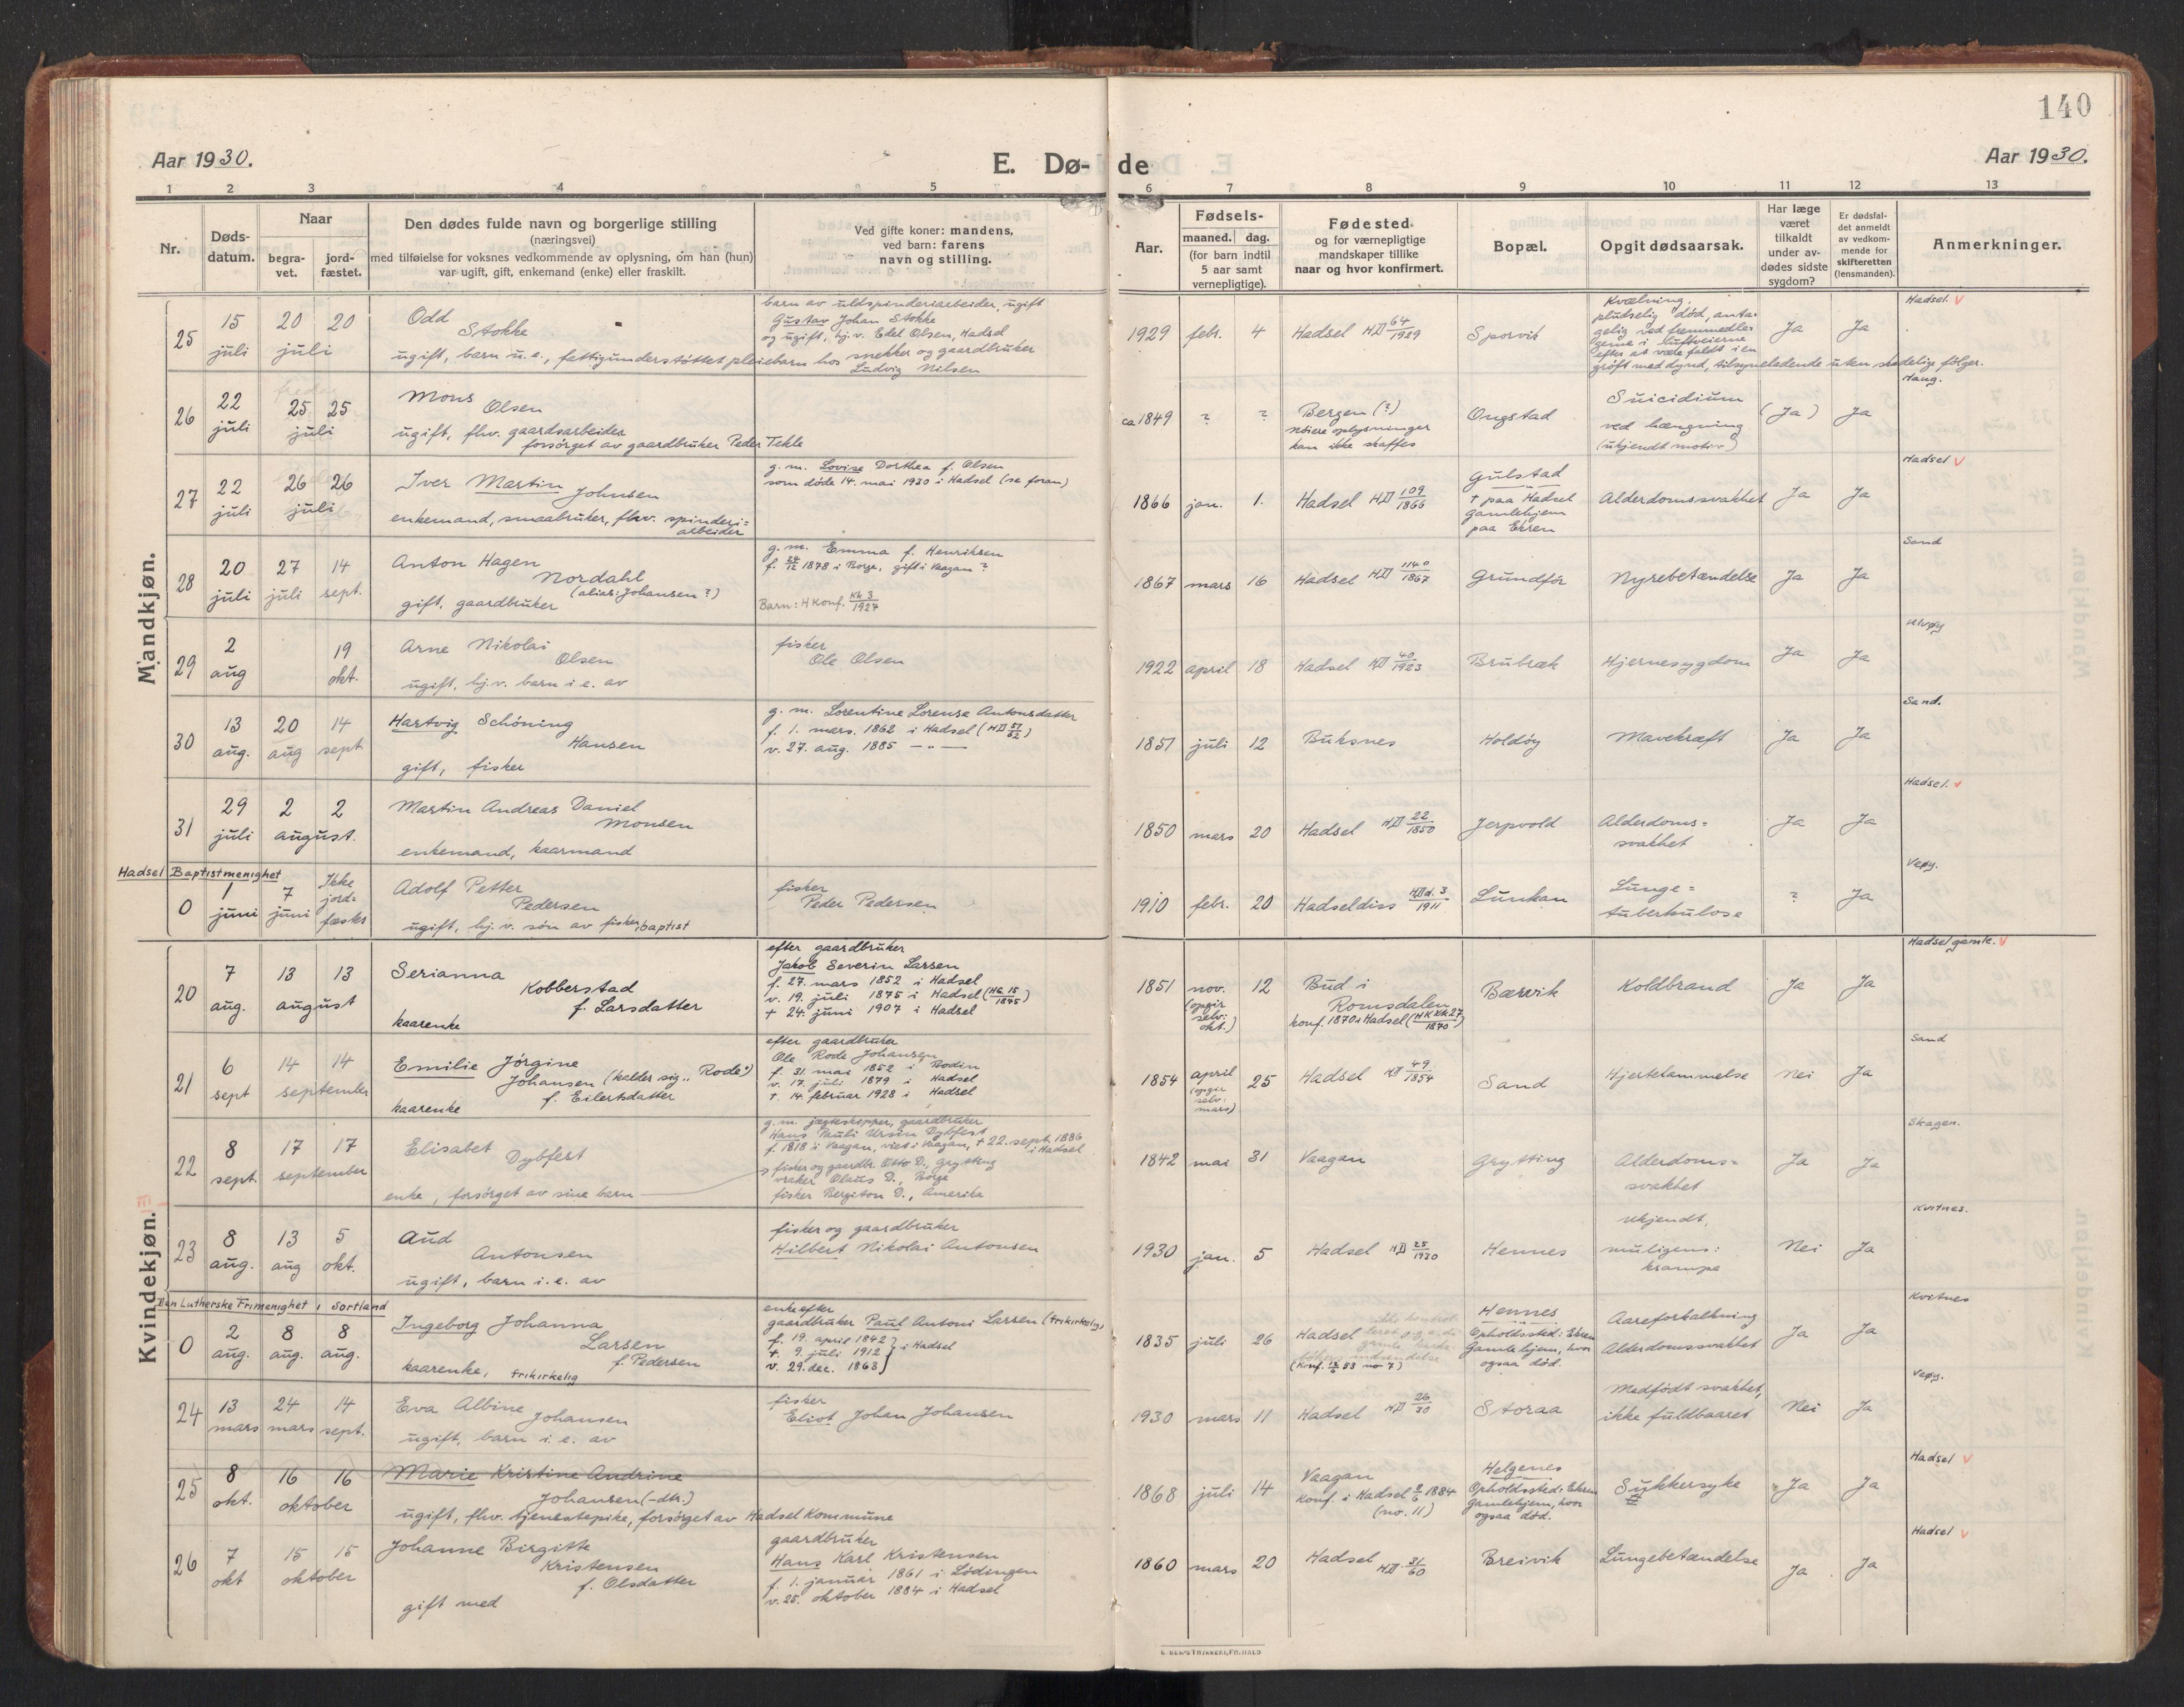 140
Aar 1930.
E. Dø-de
Aar 1930.
1 2 3 4 5 6 7 8 9 10 11 12 13
Nr.
Døds-
datum.
Naar
begra-
vet.
jord-
fæstet.
Den dødes fulde navn og borgerlige stilling
(næringsvei)
med tilføielse for voksnes vedkommende av oplysning, om han (hun)
var ugift, gift, enkemand (enke) eller fraskilt.
Ved gifte koner: mandens,
ved barn: farens
navn og stilling.
Aar.
Fødsels-
maaned. dag.
(for barn indtil
5 aar samt
vernepligtige).
Fødested.
og for værnepligtige
mandskaper tillike
naar og hvor konfirmert.
Bopæl.
Opgit dødsaarsak.
Har læge
været
tilkaldt
under av-
dødes sidste
sygdom?
Er dødsfal-
det anmeldt
av vedkom-
mende for
skifteretten
(lensmanden).
Anmerkninger.
Mandkjøn.
25
15
juli
20 20
juli
Odd
Stokke
ugift, barn u.e., fattigunderstøttet pleiebarn hos snekker og gaardbruker
Ludvig Nilsen
barn av uldspinderiarbeider, ugift
Gustav Johan Stokke
og ugift, hj.v. Edel Olsen, Hadsel
1929 febr. 4
Hadsel HD 64/1929
Sporvik
Kvælning,
plutselig død, anta-
gelig ved fremmedle-
geme i luftveierne
efter at være faldt i en
grøft med dynd, tilsyneladende uten skadelige følger.
Ja Ja
Hadsel. V
26
22
juli
25 25
juli
Mons
Olsen
ugift, fhv. gaardsarbeider
forsørget av gaardbruker Peder Tekle
ca 1849 ? ?
Bergen (?)
nøiere oplysninger
kan ikke skaffes
Ongstad
Suicidium
ved hængning
(ukjendt motiv)
(Ja) Ja
Haug.
27
22
juli
26 26
juli
Iver Martin Johnsen
enkemand, smaabruker, fhv. spinderi=
arbeider
g. m. Lovise Dorthea f. Olsen
som døde 14. mai 1930 i Hadsel (se foran)
1866 jan. 1.
Hadsel HD 109/1866
Gulstad
† paa Hadsel
gamlehjem
paa Ekren
Alderdomssvakhet
Ja Ja
Hadsel V
28
20
juli
27
juli
14
sept.
Anton Hagen
Nordahl
(alias: Johansen?)
gift. gaardbruker
g. m. Emma f. Henriksen
f. 24/12 1878 i Borge, gift i Vaagan?
Barn: H Konf. Kk 3/1927
1867 mars 16
Hadsel HD 1140/1867
Grundfør
Nyrebetændelse
Ja Ja
Sand
29
2
aug
19
okt.
Arne Nikolai
Olsen
ugift, hj.v. barn i e. av
fisker
Ole Olsen
1922 april 18
Hadsel HD 40/1923
Brubræk
Hjernesygdom
Ja Ja
Ulvøy
30
13
aug.
20
aug
14
sept.
Hartvig Schöning
Hansen
gift, fisker
g. m. Lorentine Lorense Antonsdatter
f. 1. mars. 1862 i Hadsel (HD 51/62)
v. 27. aug. 1885 — „ —
1851 juli 12
Buksnes
Holdøy
Mavekræft
Ja Ja
Sand.
31
29
juli
2 2
august.
Martin Andreas Daniel
Monsen
enkemand, kaarmand
1850 mars 20
Hadsel HD 22/1850
Jerpvold
Alderdoms=
svakhet
Ja Ja
Hadsel. V
Hadsel Baptistmenighet
0
1
juni
7
juni
Ikke
jord=
fæstet
Adolf Petter
Pedersen
ugift, hj.v. søn av fisker, baptist
fisker
Peder Pedersen
1910 febr. 20
Hadseldiss HDd. 3/1911
Lunkan
Lunge=
tuberkulose
? Ja
Vegy.
Kvindekjøn.
20
7
aug.
13 13
august
Serianna
Kobberstad
f. Larsdatter
kaarenke
efter gaardbruker
Jakob Severin Larsen
f. 27. mars 1852 i Hadsel
v. 19. juli 1875 i Hadsel (HG. 15/1875)
† 24. juni 1907 i Hadsel
1851 nov. 12
(opgir
selv:
okt.)
Bud i
Romsdalen
konf. 1870 i Hadsel (HK Kk 27/1870)
Bærvik
Koldbrand
Ja Ja
Hadsel gamle. V
21
6
sept
14 14
september
Emilie Jørgine
Johansen (kalder sig „Rode")
f. Eilertsdatter
kaarenke
efter gaardbruker
Ole Rode Johansen
f. 31. mai 1852 i Bodin
v. 17. juli 1879 i Hadsel
†. 14. februar 1928 i Hadsel
1854 april 25
(opgir
selv:
mars)
Hadsel HD 49/1854
Sand
Hjertelammelse
Nei Ja
Sand
22
8
sept.
17 17
september
Elisabet
Dybfest
enke, forsørget av sine barn
g. m. jægteskipper, gaardbruker
Hans Muli Ursin Dybfest
f. 1818 i Vaagan, viet i Vaagan, † 22. sept. 1886
i Hadsel
fisker og gaardbr. Otto D., Grytting
vraker Olaus D., Borge
fisker Bergiton D., Amerika
1842 mai 31
Vaagan
Grytting
Alderdoms=
svakhet
Ja Ja
Skagen.
23
8
aug.
13
aug
5
okt.
Aud
Antonsen
ugift, barn i. e. av
fisker og gaardbruker
Hilbert Nikolai Antonsen
1930 jan. 5
Hadsel HD 25/1930
Hennes
Ukjendt,
muligens:
krampe
Nei Ja
Kvitnes.
Den Lutherske Frimenighet i Sortland
0
2
aug.
8
aug.
8
aug.
Ingeborg Johanna
Larsen
f. Pedersen
kaarenke, frikirkelig
enke efter
gaardbruker Paul Antoni Larsen (frikirkelig)
f. 19. april 1842
†. 9. juli 1912 } i Hadsel
v. 29. dec. 1863
1835 juli 26
Hadsel
Hennes
Opholdssted: Ekren
Gamlehjem, hvor
ogsaa død.
Aareforkalkning
Alderdomssvakhet
Ja Ja
Kvitnes
24
13
mars
24
mars
14
sept.
Eva Albine
Johansen
ugift, barn i. e. av
fisker
Eliot Johan Johansen
1930 mars 11
Hadsel HD 26/30
Storaa
Medfødt svakhet,
ikke fuldbaaret
Nei Ja
Vegy.
25
8
okt.
16 16
oktober
Marie Kristine Andrine
Johansen (-dtr.)
ugift, fhv. tjenestepike, forsørget av Hadsel Kommune
1868 juli 14
Vaagan
Konf. i Hadsel 8/6 1884
(no. 11)
Helgenes
Opholdssted: Ekren
Gamlehjem, hvor
ogsaa død.
Sukkersyke
Ja Ja
Hadsel V
26
7
okt
15 15
oktober
Johanne Birgitte
Kristensen
f. Olsdatter
gift med
gaardbruker
Hans Karl Kristensen
f. 1. januar 1861 i Lødingen
v. 25. oktober 1884 i Hadsel
1860 mars 20
Hadsel HD 31/60
Breivik
Lungebetændelse
Ja Ja
Hadsel V